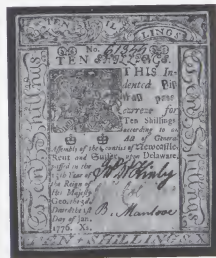 TEN SHILLINGS
No. 61345
TEN SHILLINGS.
THIS In-
dented Bill
shall pass
current for
Ten Shillings
according to an
Act of General
Assembly of the Counties of Newcastle,
Kent and Sussex, upon Delaware,
passed in the
15th Year of
the Reign of
his Majesty
Geo. the 3d.
Dated the 1st
Day of Jan.
1776.
B. Manlove
Ten Shillings
Ten Shillings
TEN SHILLINGS